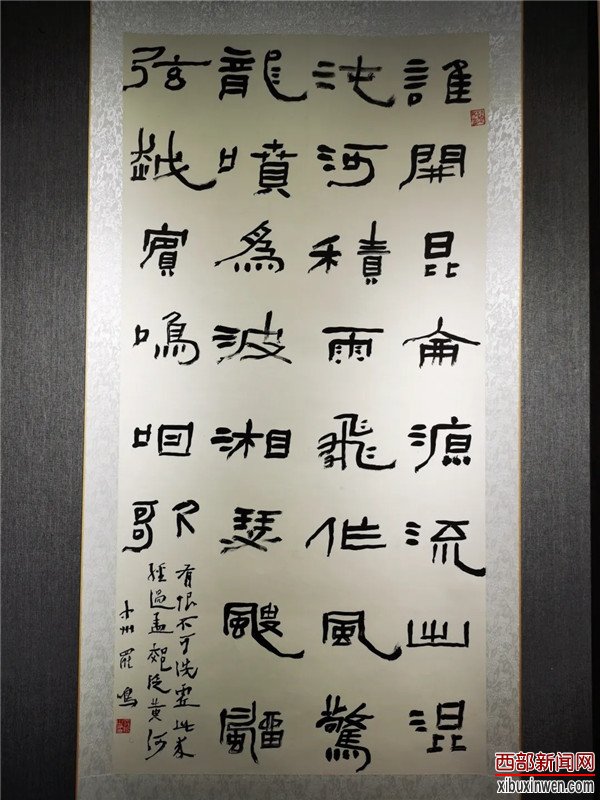 誰開昆侖源流出混
沌河積雨飛作風驚
龍噴為波湘瑟颼飀
弦越賓嗚咽歌
有恨不可洗虛此來
經過孟郊泛黃河
州鳴
西部新闻网
xibuxinwen.com